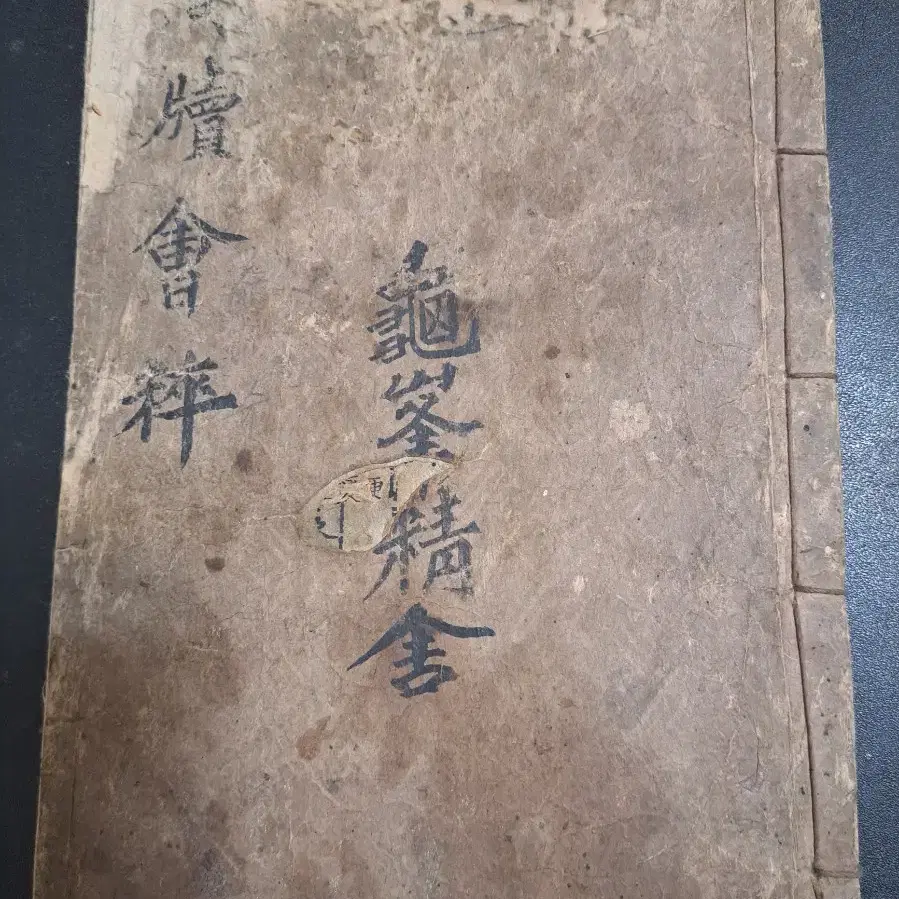 牘會粹
龜峯精舍